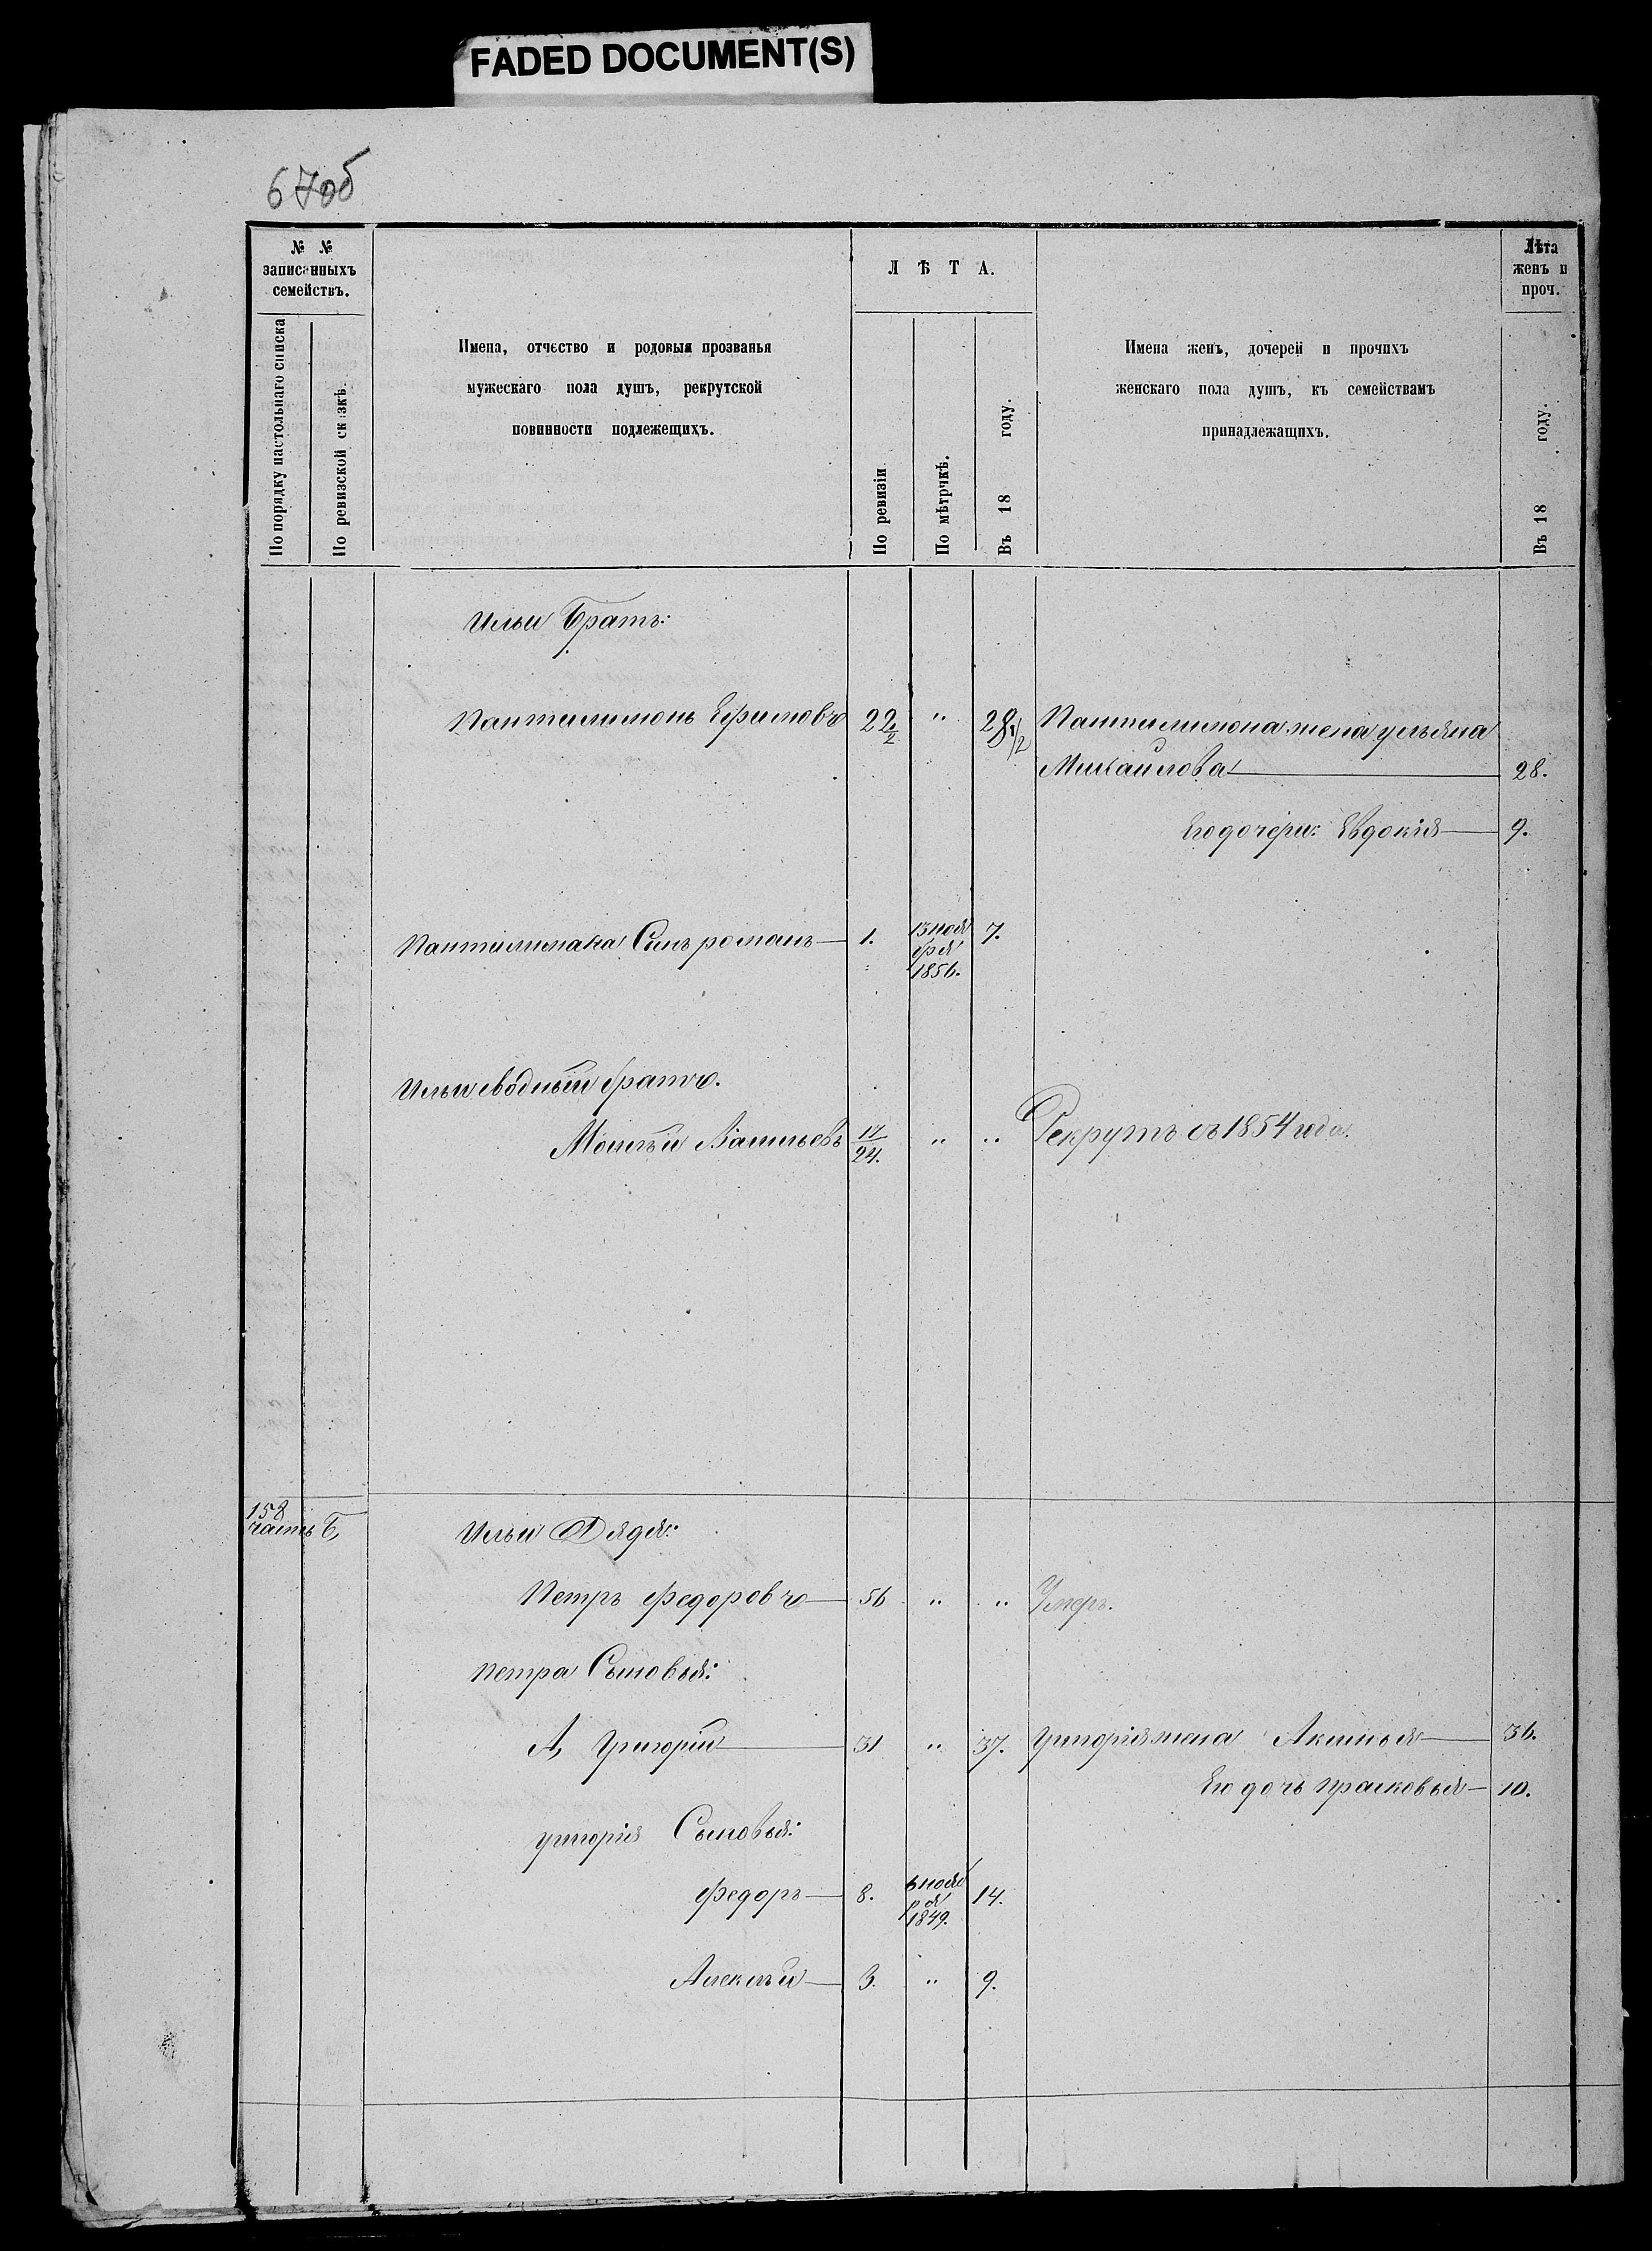 FADED DOCUMENT(S)
67об
№ №
записанныхъ
семействъ.
По порядку настольнаго списка
По ревизской сказкѣ.
Имена, отчество и родовыя прозванья
мужескаго пола душъ, рекрутской
повинности подлежещихъ.
ЛѢТА.
По ревизіи
По мѣтрчкѣ.
Въ 18 году.
Имена женъ, дочерей и прочихъ
женскаго пола душъ, къ семействамъ
принадлежащихъ.
Лѣта
женъ и
проч.
Въ 18 году.
Ильи Братъ:
Пантилимонъ Ефимовъ 22 1/2 " 28 1/2 Пантилимона жена ульяна
Михаилова 28.
Его дочери: Евдокія 9.
Сынъ романъ 1. 13 ноя 7.
бря
1856.
Ильи сводный братъ.
Васильевъ 17/24. " " Рекрутъ съ 1854 года.
158
часть Б,
Ильи Дядя:
Петръ Федоровъ 56 " " Умеръ.
Петра Сыновья:
А, Григорій 31 " 37. Григорія жена Аксинья 36.
Его дочь прасковья 10.
григорія Сыновья:
Федоръ 8. 6 нояб 14.
ря
1849.
Алексѣй 3. " 9.